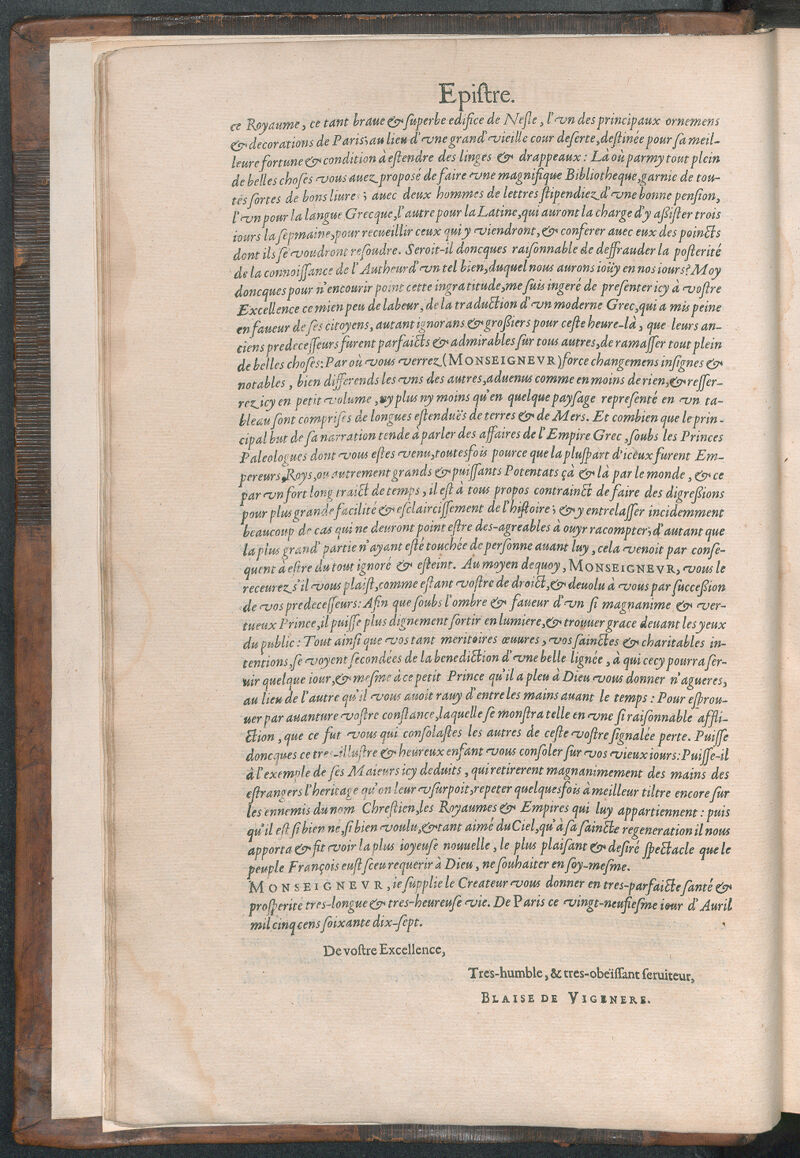 Epiſtre.
ce Royaume, ce tant braue & ſuperbe edifice de Neſle, l'vn des principaux ornemens
& decorations de Paris; au lieu d'vne grand' vieille cour deſerte, deſtinée pour ſa meil-
leure fortune & condition à eſtendre des linges & drappeaux: Là où parmy tout plein
de belles choſes vous auez propoſé de faire vne magnifique Bibliotheque, garnie de tou-
tes ſortes de bons liures; auec deux hommes de lettres ſtipendiez d'vne bonne penſion,
l'vn pour la langue Grecque, l'autre pour la Latine, qui auront la charge d'y aßiſter trois
iours la ſepmaine, pour recueillir ceux qui y viendront, & conferer auec eux des poincts
dont ils ſe voudront reſoudre. Seroit-il doncques raiſonnable de deffrauder la poſterité
de la connoiſſance de l'Autheur d'vn tel bien, duquel nous aurons ioüy en nos iours? Moy
doncques pour n'encourir point cette ingratitude, me ſuis ingeré de preſenter icy à voſtre
Excellence ce mien peu de labeur, de la traduction d'vn moderne Grec, qui a mis peine
en faueur de ſes citoyens, autant ignorans & großiers pour ceſte heure-là, que leurs an-
ciens predeceſſeurs furent parfaicts & admirables ſur tous autres, de ramaſſer tout plein
de belles choſes: Par où vous verrez (MONSEIGNEVR) force changemens inſignes &
notables, bien differends les vns des autres, aduenus comme en moins de rien, & reſſer-
rez icy en petit volume, ny plus ny moins qu'en quelque payſage repreſenté en vn ta-
bleau ſont compriſes de longues eſtenduës de terres & de Mers. Et combien que le prin-
cipal but de ſa narration tende à parler des affaires de l'Empire Grec, ſoubs les Princes
Paleologues dont vous eſtes venu, toutesfois pource que la pluſpart d'iceux furent Em-
pereurs, Roys, ou autrement grands & puiſſants Potentats çà & là par le monde, & ce
par vn fort long traict de temps, il eſt à tous propos contrainct de faire des digreßions
pour plus grande facilité & eſclairciſſement de l'hiſtoire; & y entrelaſſer incidemment
beaucoup de cas qui ne deuront point eſtre des-agreables à ouyr racompter; d'autant que
la plus grand' partie n'ayant eſté touchée de perſonne auant luy, cela venoit par conſe-
quent à eſtre du tout ignoré & eſteint. Au moyen dequoy, MONSEIGNEVR, vous le
receurez s'il vous plaiſt, comme eſtant voſtre de droict, & deuolu à vous par ſucceßion
de vos predeceſſeurs: Afin que ſoubs l'ombre & faueur d'vn ſi magnanime & ver-
tueux Prince, il puiſſe plus dignement ſortir en lumiere, & trouuer grace deuant les yeux
du public: Tout ainſi que vos tant meritoires œuures, vos ſainctes & charitables in-
tentions, ſe voyent ſecondées de la benediction d'vne belle lignée, à qui cecy pourra ſer-
uir quelque iour, & meſme à ce petit Prince qu'il a pleu à Dieu vous donner n'agueres,
au lieu de l'autre qu'il vous auoit rauy d'entre les mains auant le temps: Pour eſprou-
uer par auanture voſtre conſtance, laquelle ſe monſtra telle en vne ſi raiſonnable affli-
ction, que ce fut vous qui conſolaſtes les autres de ceſte voſtre ſignalée perte. Puiſſe
doncques ce tres-illuſtre & heureux enfant vous conſoler ſur vos vieux iours: Puiſſe-il
à l'exemple de ſes Maieurs icy deduits, qui retirerent magnanimement des mains des
eſtrangers l'heritage qu'on leur vſurpoit, repeter quelquesfois à meilleur tiltre encore ſur
les ennemis du nom Chreſtien, les Royaumes & Empires qui luy appartiennent: puis
qu'il eſt ſi bien né, ſi bien voulu, & tant aimé du Ciel, qu'à ſa ſaincte regeneration il nous
apporta & fit voir la plus ioyeuſe nouuelle, le plus plaiſant & deſiré ſpectacle que le
peuple François euſt ſceu requerir à Dieu, ne ſouhaiter en ſoy-meſme.
MONSEIGNEVR, ie ſupplie le Createur vous donner en tres-parfaicte ſanté &
proſperité tres-longue & tres-heureuſe vie. De Paris ce vingt-neufieſme iour d'Auril
mil cinq cens ſoixante dix-ſept.
De voſtre Excellence,
Tres-humble, & tres-obeïſſant ſeruiteur,
BLAISE DE VIGENERE.